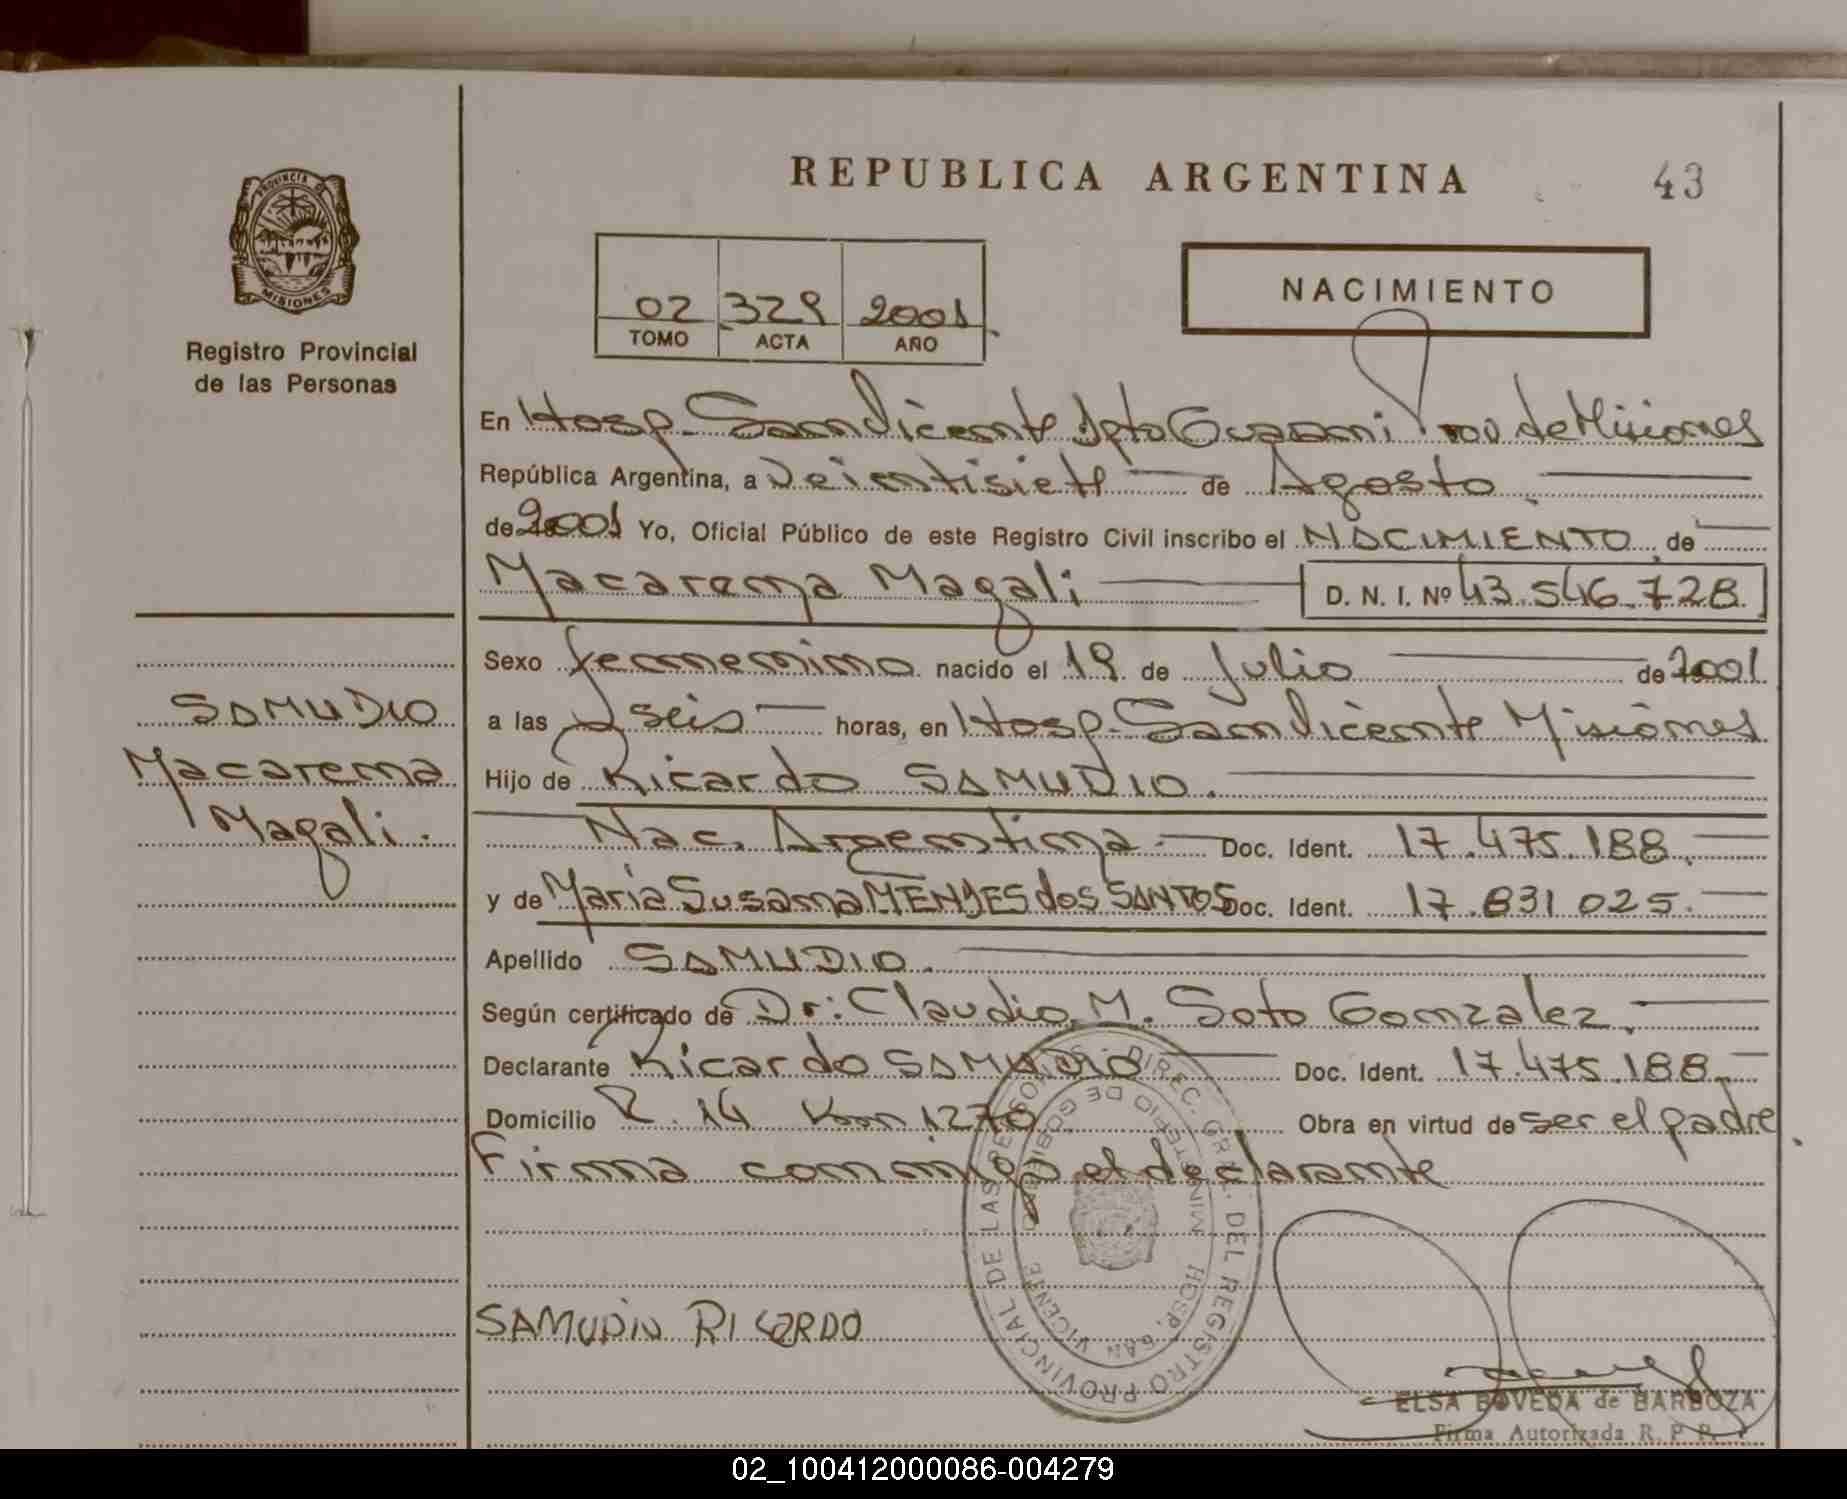 REPUBLICA ARGENTINA
43
PROVINCIA DE
MISIONES
Registro Provincial
de las Personas
02 329 2001
TOMO ACTA AÑO
NACIMIENTO
En Hosp. San Vicente Dpto Guarani Prov de Misiones
República Argentina, a Veintisiete de Agosto
de 2001 Yo, Oficial Público de este Registro Civil inscribo el NACIMIENTO de
Macarena Magali D. N. I. Nº 43.546.728
Sexo femenino nacido el 19 de Julio de 2001
a las seis horas, en Hosp. San Vicente Misiones
Hijo de Ricardo SAMUDIO.
Nac. Argentina Doc. Ident. 17.475.188
y de Maria Susana MENDES dos SANTOS Doc. Ident. 17.831 025.
Apellido SAMUDIO.
Según certificado de Dr: Claudio M. Soto Gonzalez.
Declarante Ricardo SAMUDIO Doc. Ident. 17.475.188
Domicilio R. 14 Km 1270 Obra en virtud de ser el padre.
Firma conmigo el declarante
SAMUDIO
Macarena
Magali.
DIREC. GRAL. DEL REGISTRO PROVINCIAL DE LAS PERSONAS
MINISTERIO DE GOBIERNO
HOSP. SAN VICENTE
SAMUDIO RICARDO
ELSA BOVEDA de BARBOZA
Firma Autorizada R. P. P.
02_100412000086-004279